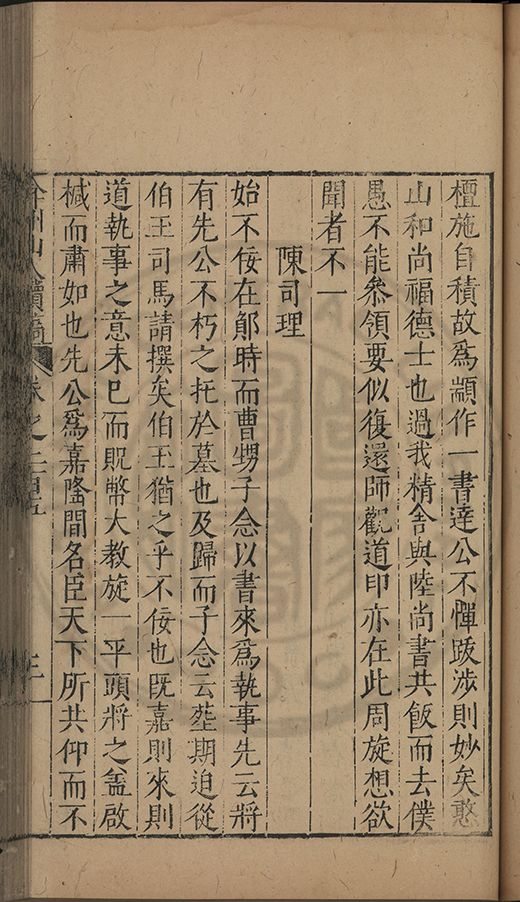 檀施自積故爲顓作一書達公不憚跋涉則妙矣憨
山和尚福德士也過我精舍與陸尚書共飯而去僕
愚不能叅領要似復還師觀道印亦在此周旋想欲
聞者不一
陳司理
始不佞在鄖時而曹甥子念以書來爲執事先云將
有先公不朽之托於墓也及歸而子念云塟期迫從
伯王司馬請撰矣伯王猶之乎不佞也既嘉則來則
道執事之意未已而貺幣大教旋一平頭將之盒啟
椷而肅如也先公爲嘉隆間名臣天下所共仰而不
弇州山人續稿 卷之